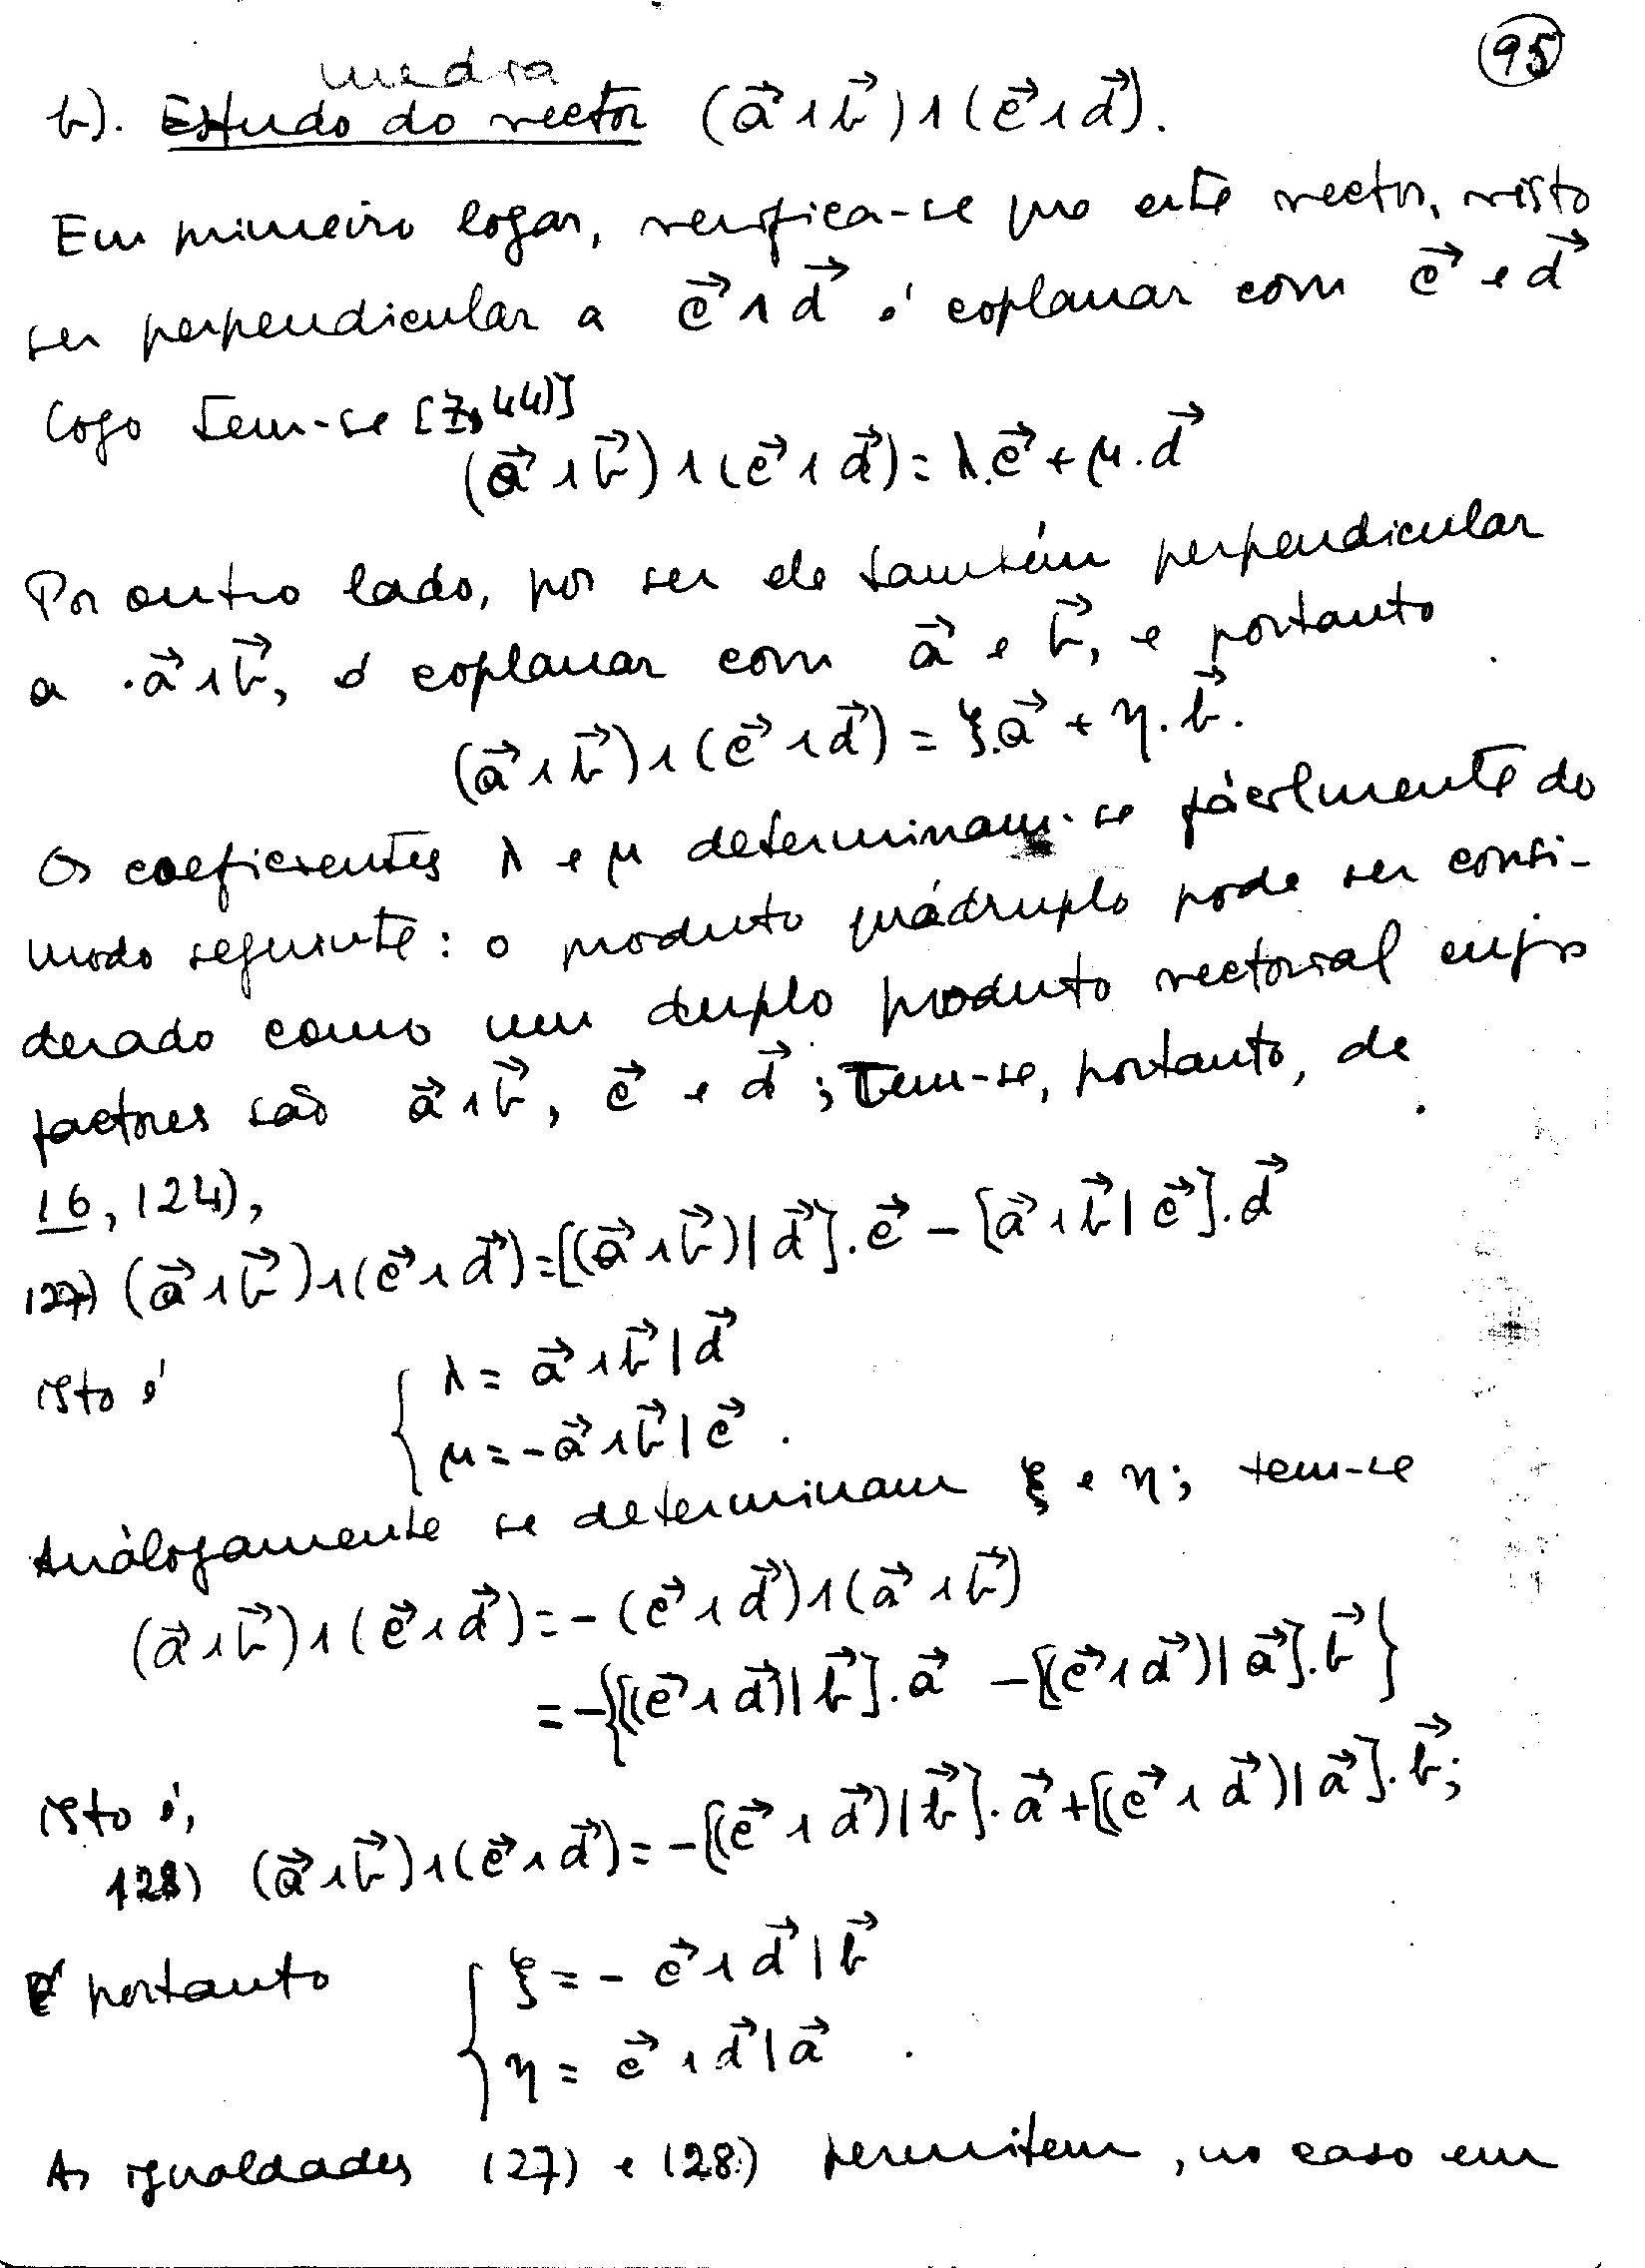 95
media
b). Estudo do vector (a⃗ ∧ b⃗) ∧ (c⃗ ∧ d⃗).
Em primeiro logar, verifica-se que este vector, visto
ser perpendicular a c⃗ ∧ d⃗ é coplanar com c⃗ e d⃗
logo tem-se [7, 44)]
(a⃗ ∧ b⃗) ∧ (c⃗ ∧ d⃗) = λ.c⃗ + μ.d⃗
Por outro lado, por ser ele também perpendicular
a a⃗ ∧ b⃗, é coplanar com a⃗ e b⃗, e portanto
(a⃗ ∧ b⃗) ∧ (c⃗ ∧ d⃗) = ξ.a⃗ + η.b⃗.
Os coeficientes λ e μ determinam-se fàcilmente do
modo seguinte: o produto quádruplo pode ser consi-
derado como um duplo produto vectorial cujos
factores são a⃗ ∧ b⃗, c⃗ e d⃗; tem-se, portanto, de
16, 124),
127) (a⃗ ∧ b⃗) ∧ (c⃗ ∧ d⃗) = [(a⃗ ∧ b⃗) | d⃗].c⃗ − [a⃗ ∧ b⃗ | c⃗].d⃗
isto é { λ = a⃗ ∧ b⃗ | d⃗
μ = − a⃗ ∧ b⃗ | c⃗ .
Anàlogamente se determinam ξ e η; tem-se
(a⃗ ∧ b⃗) ∧ (c⃗ ∧ d⃗) = − (c⃗ ∧ d⃗) ∧ (a⃗ ∧ b⃗)
= −{[(c⃗ ∧ d⃗) | b⃗].a⃗ − [(c⃗ ∧ d⃗) | a⃗].b⃗}
isto é,
128) (a⃗ ∧ b⃗) ∧ (c⃗ ∧ d⃗) = −[(c⃗ ∧ d⃗) | b⃗].a⃗ + [(c⃗ ∧ d⃗) | a⃗].b⃗;
e portanto { ξ = − c⃗ ∧ d⃗ | b⃗
η = c⃗ ∧ d⃗ | a⃗ .
As igualdades 127) e 128) permitem, no caso em